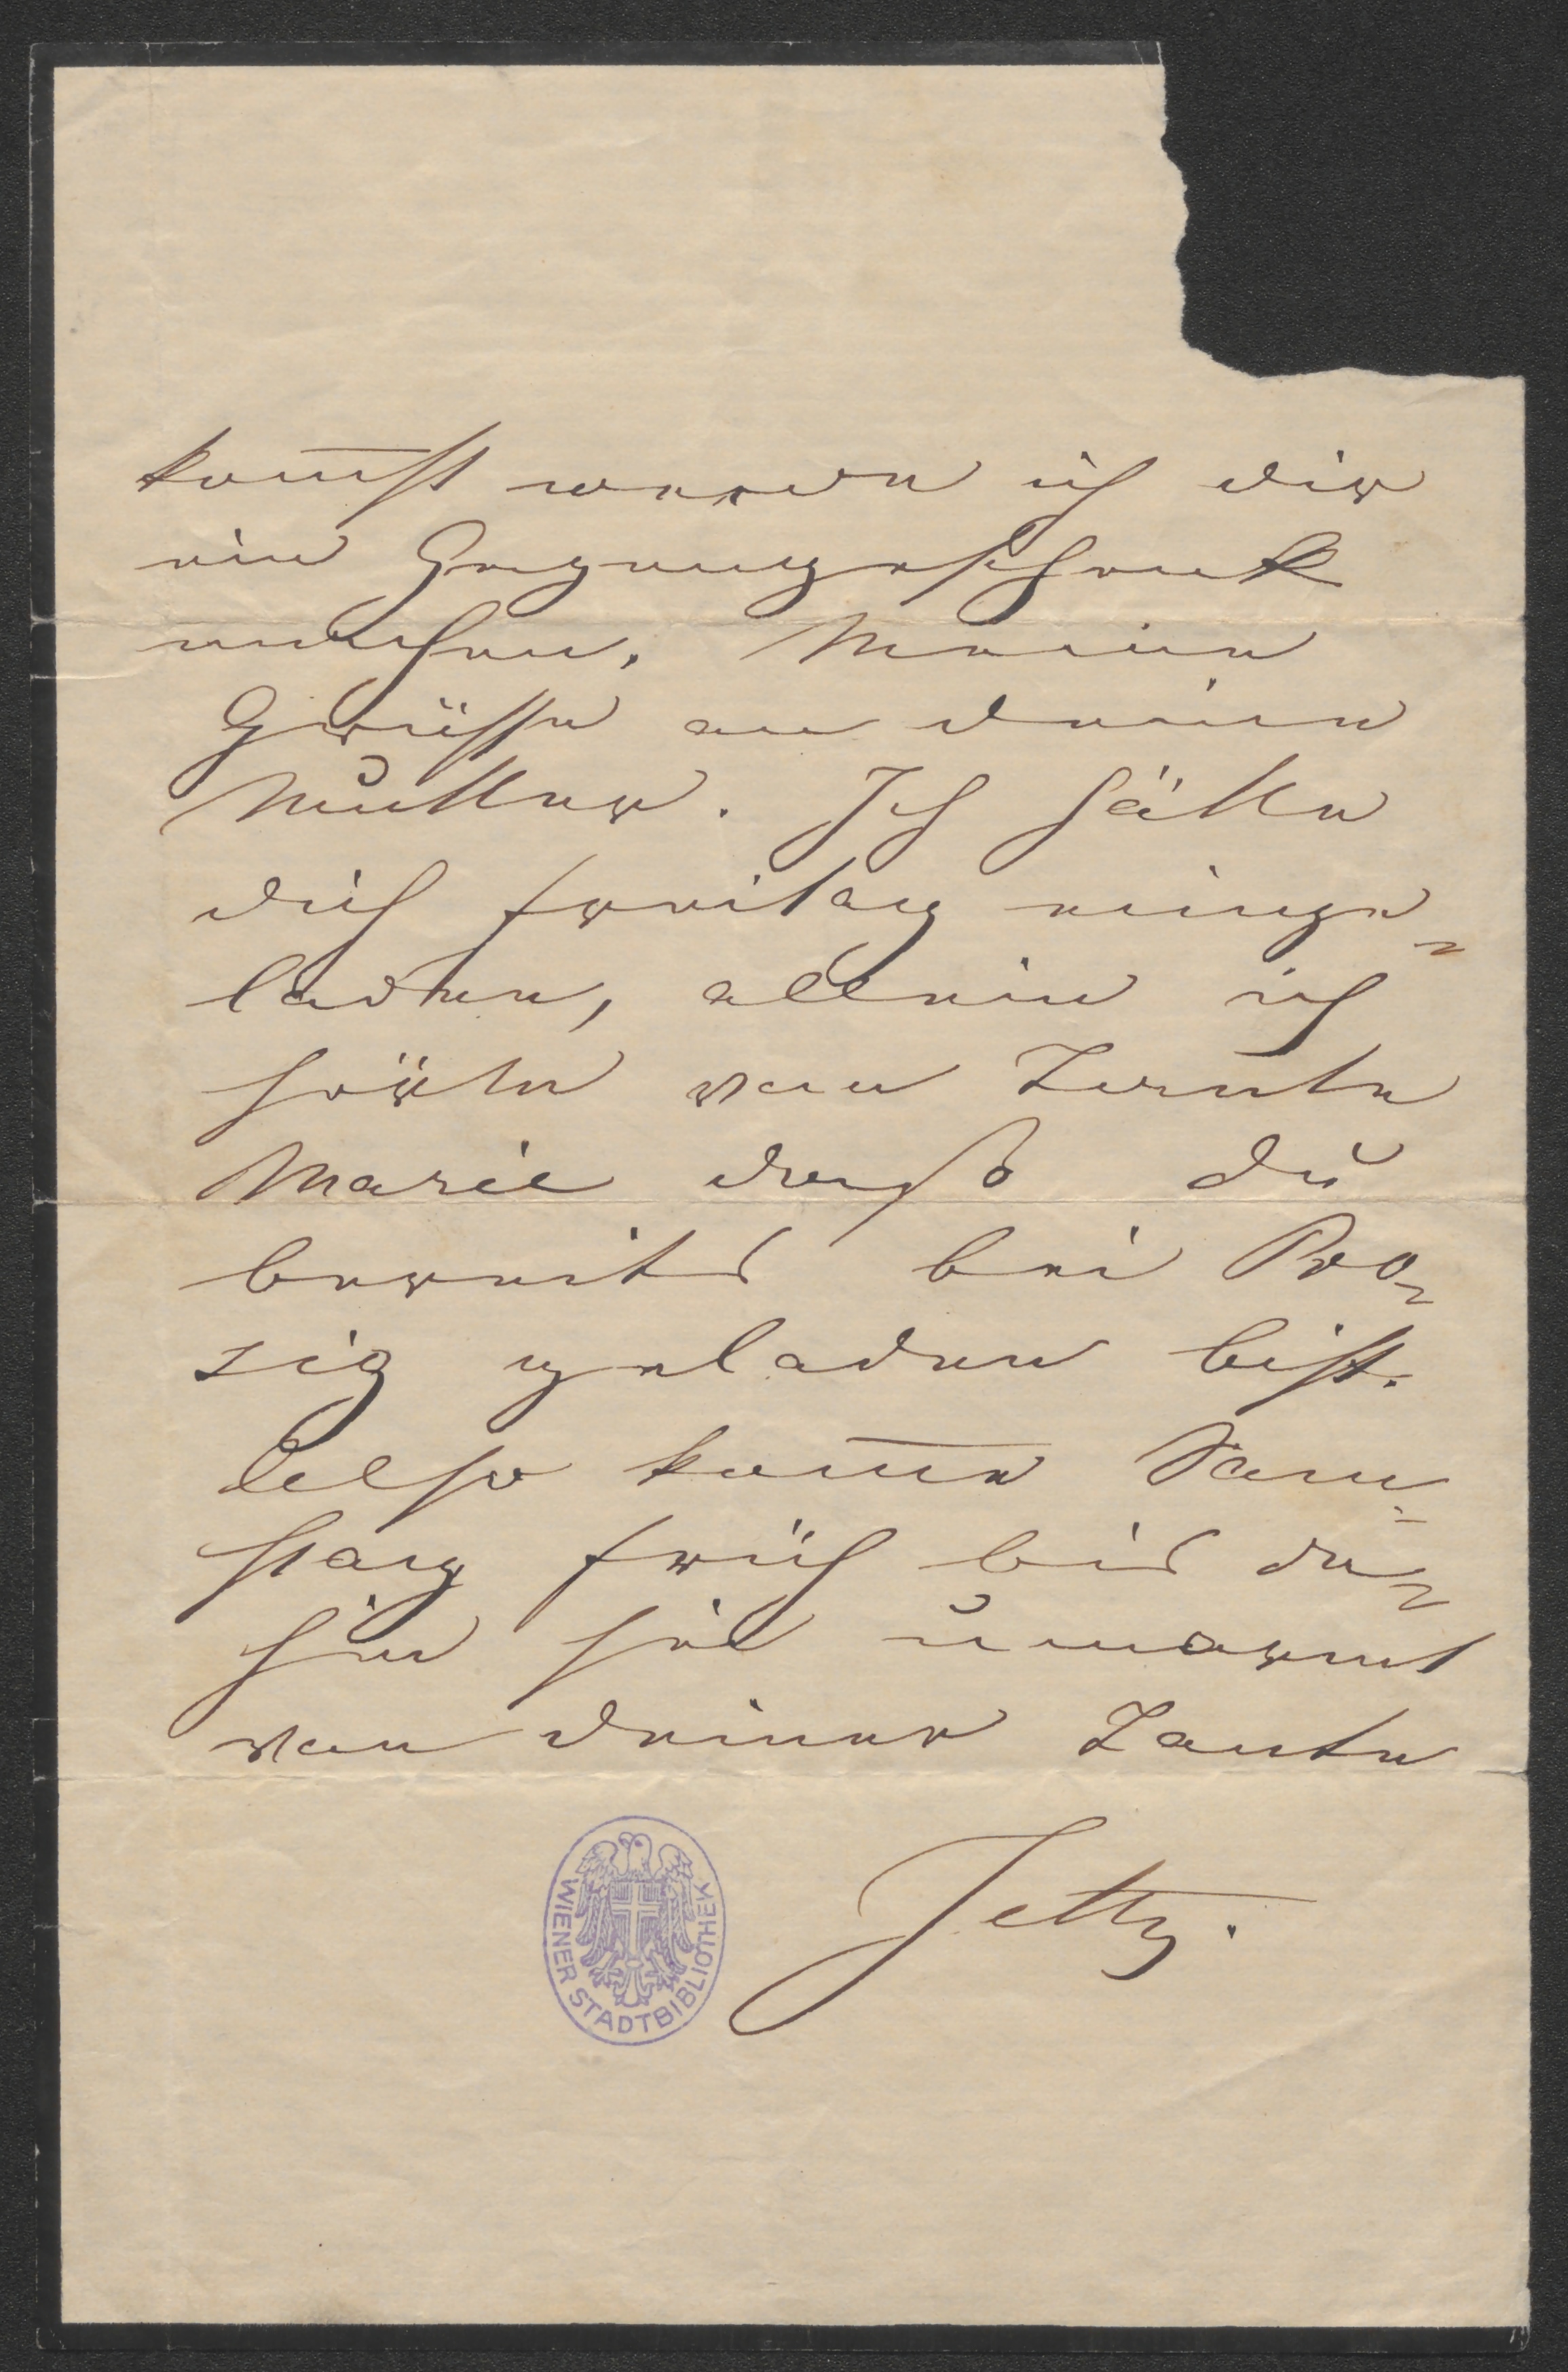 kom̅st werde ich dir
ein Gegengeschenk
machen. Meine
Grüsse an deine
Mutter. Ich hätte
dich freitag einge-
laden, allein ich
hörte von Tante
Marie daß du
bereits bei Pro-
zig geladen bist.
Also kom̅e Sam-
stag früh bis da-
hin sei umarmt
von deiner Tante
Jetty.
WIENER STADTBIBLIOTHEK